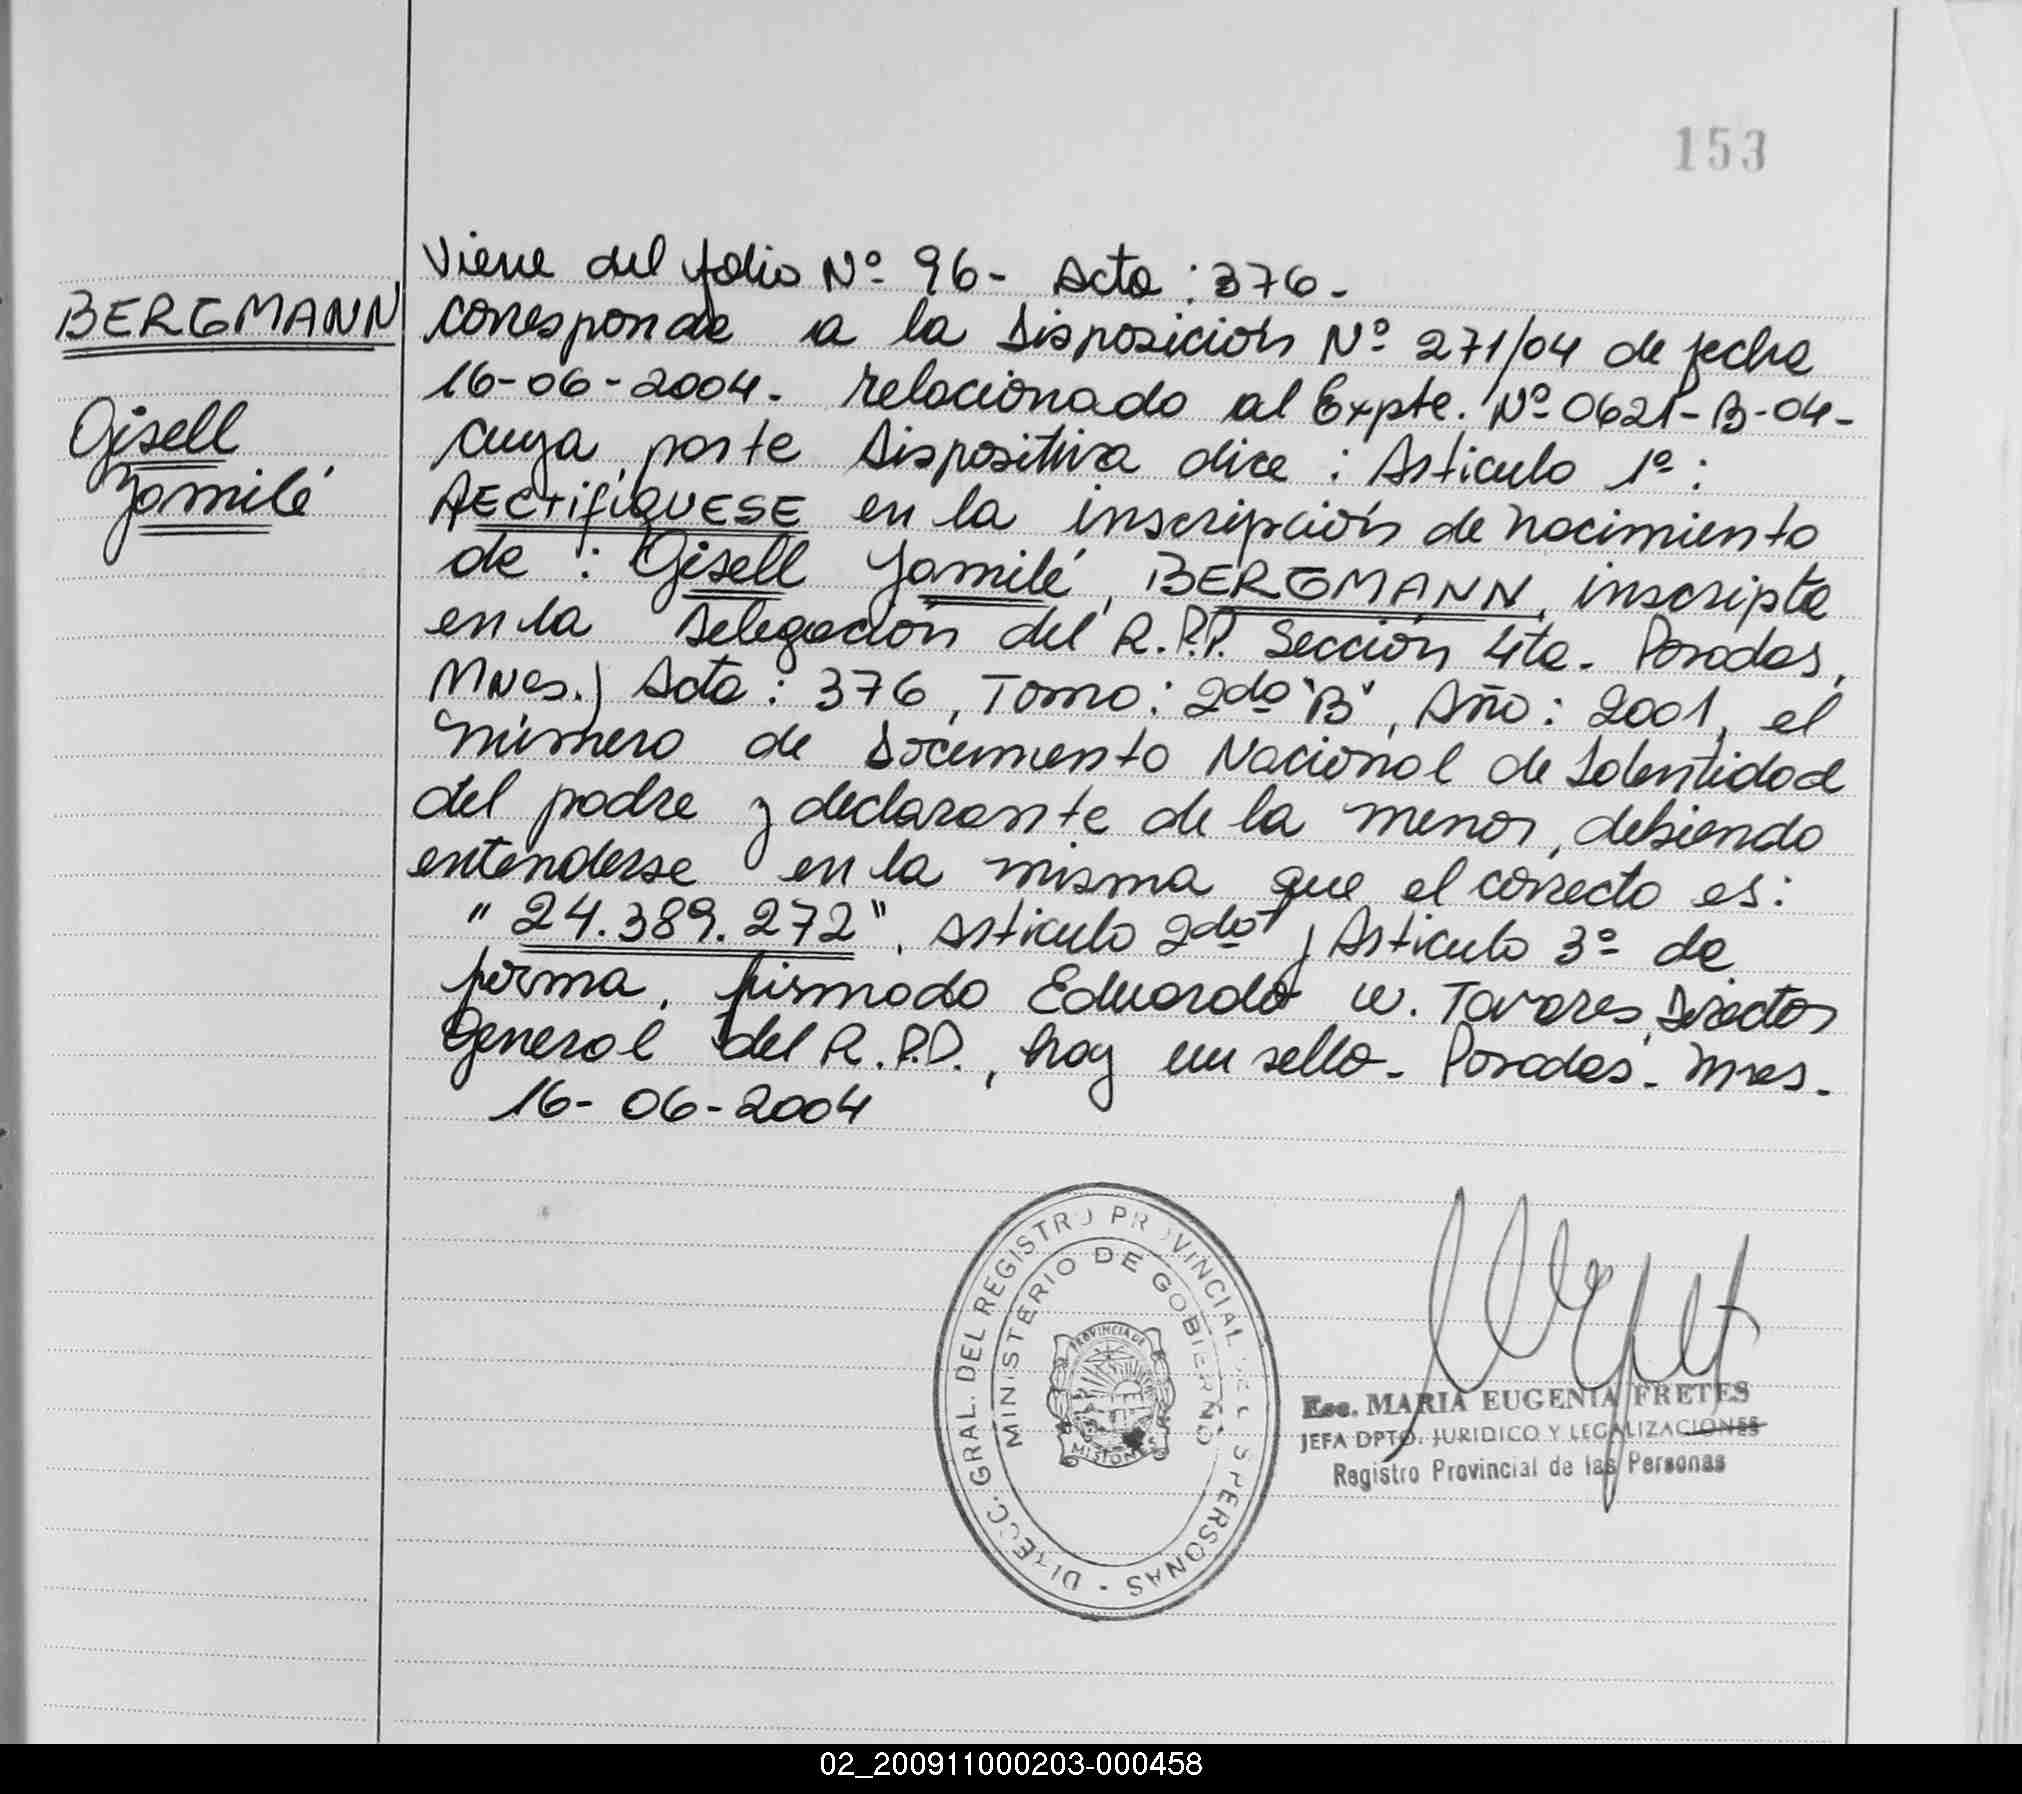 153
BERGMANN
Gisell
Yamilé
Viene del folio Nº 96- Acta: 376-
corresponde a la Disposición Nº 271/04 de fecha
16-06-2004. relacionado al Expte. Nº 0621-B-04-
cuya parte Dispositiva dice: Artículo 1º:
RECTIFIQUESE en la inscripción de nacimiento
de: Gisell Yamilé, BERGMANN, inscripta
en la Delegación del R.P.P. Sección 4ta. Posadas,
Mnes.) Acta: 376, Tomo: 2do "B", Año: 2001, el
número de Documento Nacional de Identidad
del padre y declarante de la menor, debiendo
entenderse en la misma que el correcto es:
"24.389.272", Artículo 2do y Artículo 3º de
forma, firmado Eduardo W. Tavares, Director
General del R.P.P., hay un sello- Posadas- Mnes-
16-06-2004
DIRECC. GRAL. DEL REGISTRO PROVINCIAL DE LAS PERSONAS -
MINISTERIO DE GOBIERNO
PROVINCIA DE
MISIONES
Esc. MARIA EUGENIA FRETES
JEFA DPTO. JURIDICO Y LEGALIZACIONES
Registro Provincial de las Personas
02_200911000203-000458